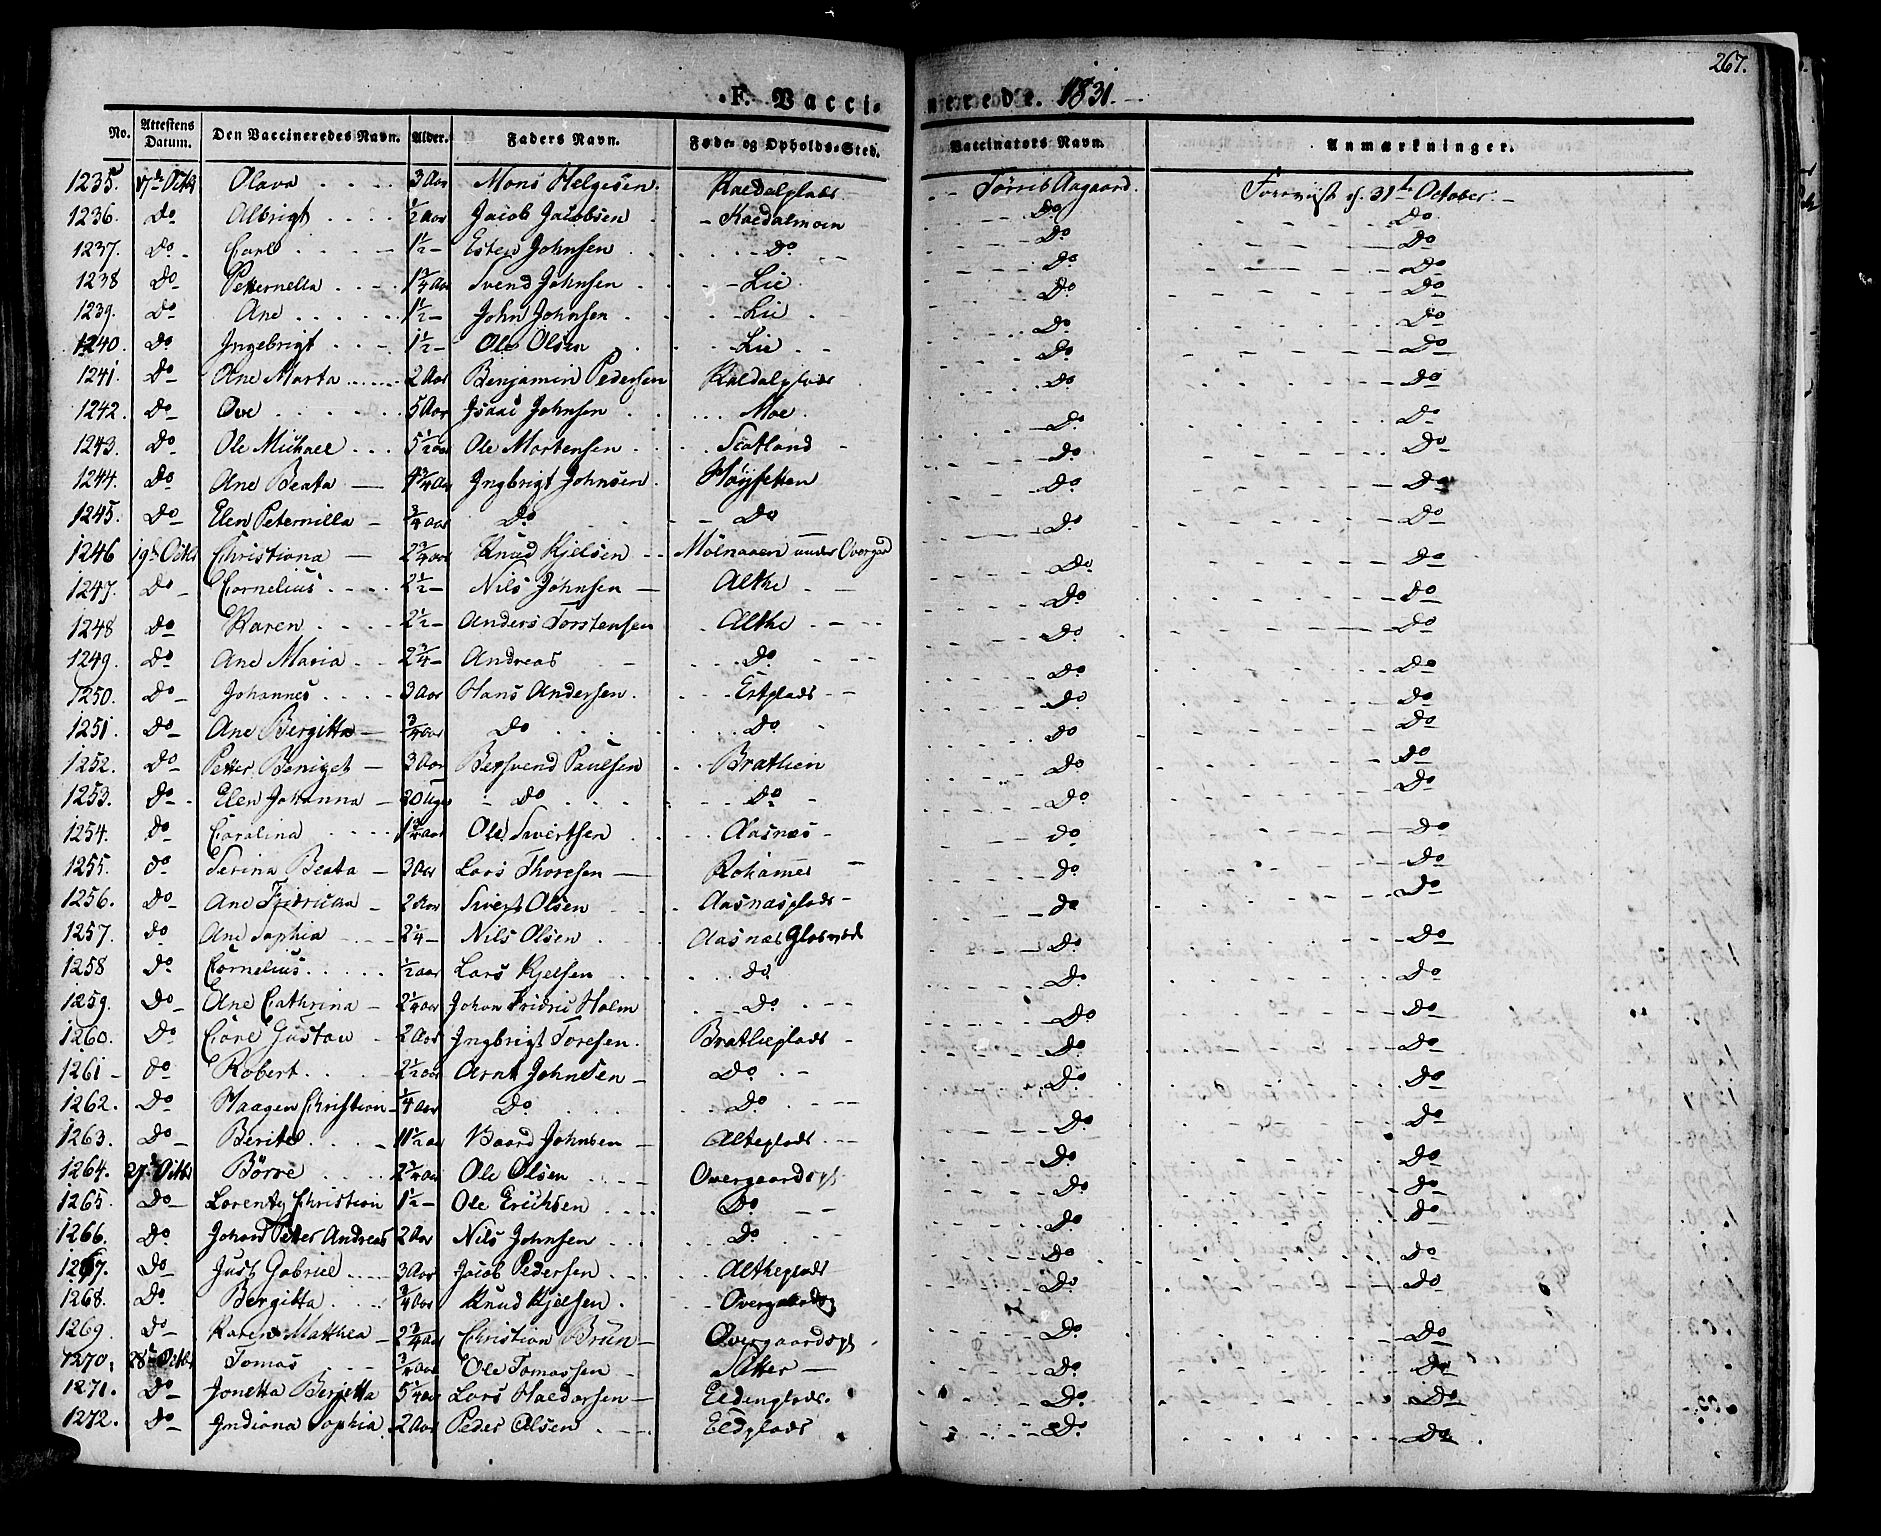 267.
F. Vaccinerede. 1831.
No. Attestens Datum. Den Vaccineredes Navn. Alder. Faders Navn. Føde- og Opholds-Sted. Vaccinators Navn. Anmærkninger.
1235. 17de Octbr Olava 3 Aar Mons Helgesen. Kaldalplads Aagaard. 31te October.
1236. Do Albrigt 1/2 Aar Jacob Jacobsen Kaldalmoen Do Do
1237. Do Carl 1 1/2 Esten Johnsen Do Do Do
1238 Do Petternella 1 3/4 Aar Svend Johnsen Lie Do Do
1239. Do Ane 1 1/2 John Johnsen Lie Do Do
1240. Do Ingebrigt 1 1/2 Ole Olsen Lie Do Do
1241. Do Ane Marta 2 Aar Benjamin Pedersen Kaldalplads Do Do
1242. Do Ove 5 Aar Isaac Johnsen Moe Do Do
1243. Do Ole Michael 5 1/2 Aar Ole Mortensen Scotland Do Do
1244. Do Ane Beata 4 3/4 Aar Ingbrigt Johnsen Høysetten Do Do
1245. Do Elen Peternilla 3/4 Aar Do Do Do Do
1246 19de Octbr Christiana 2 3/4 Aar Knud Kjelsen under Overgrd Do Do
1247. Do Cornelius 2 1/2 Nils Johnsen Altke Do Do
1248 Do Karen 2 1/2 Anders Torstensen Altke Do Do
1249. Do Ane Maria 2 3/4 Andreas Do Do Do
1250. Do Johannes 3 Aar Hans Andersen Estplads Do Do
1251. Do Ane Bergitta 3/4 Aar Do Do Do Do
1252. Do Petter Beniget 3 Aar Bersvend Paulsen Bratlien Do Do
1253. Do Elen Johanna 20 Uger Do Do Do Do
1254. Do Carolina 1 3/4 Aar Ole Sivertsen Aasnæs Do Do
1255. Do Serina Beata 3 Aar Lars Thoresen Rohamer Do Do
1256. Do Ane Fridricka 2 Aar Sivert Olsen Aasnæsplads Do Do
1257. Do Ane Sophia 2 1/4 Nils Olsen Aasnæs Glasværk Do Do
1258 Do Cornelius 1/2 Aar Lars Kjelsen Do Do Do
1259. Do Ane Cathrina 2 1/4 Aar Johan Fridric Holm Do Do Do
1260. Do Carl Gustav 2 Aar Ingbrigt Toresen. Bratlieplads Do Do
1261 Do Robert 2 1/2 Aar Arnt Johnsen Do Do Do
1262. Do Haagen Christian 1/4 Aar Do Do Do Do
1263. Do Beritel 11 1/2 Aar Baard Johnsen Alteplads Do Do
1264. 27de Octbr Børre 2 1/4 Aar Ole Olsen Overgaardspl Do Do
1265. Do Lorents Christian 1 1/2 Ole Erichsen Do Do Do
1266. Do Johan Peter Andreas 2 Aar Nils Johnsen Do Do Do
1267. Do Just Gabriel 3 Aar Jacob Pedersen Altkeplads Do Do
1268. Do Bergitta 3/4 Aar Knud Kjelsen. Overgaardspl Do Do
1269. Do Karen Matthea 2 3/4 Aar Christian Brun Overgaardspl Do Do
1270. 28de Octbr Tomas 3/4 Aar Ole Tomassen Sætter Do Do
1271. Do Jonetta Berjetta 5 1/4 Aar Lars Haldorsen Eldenplads Do Do
1272. Do Indiana Sophia 2 Aar Peder Olsen Eldplads Do Do